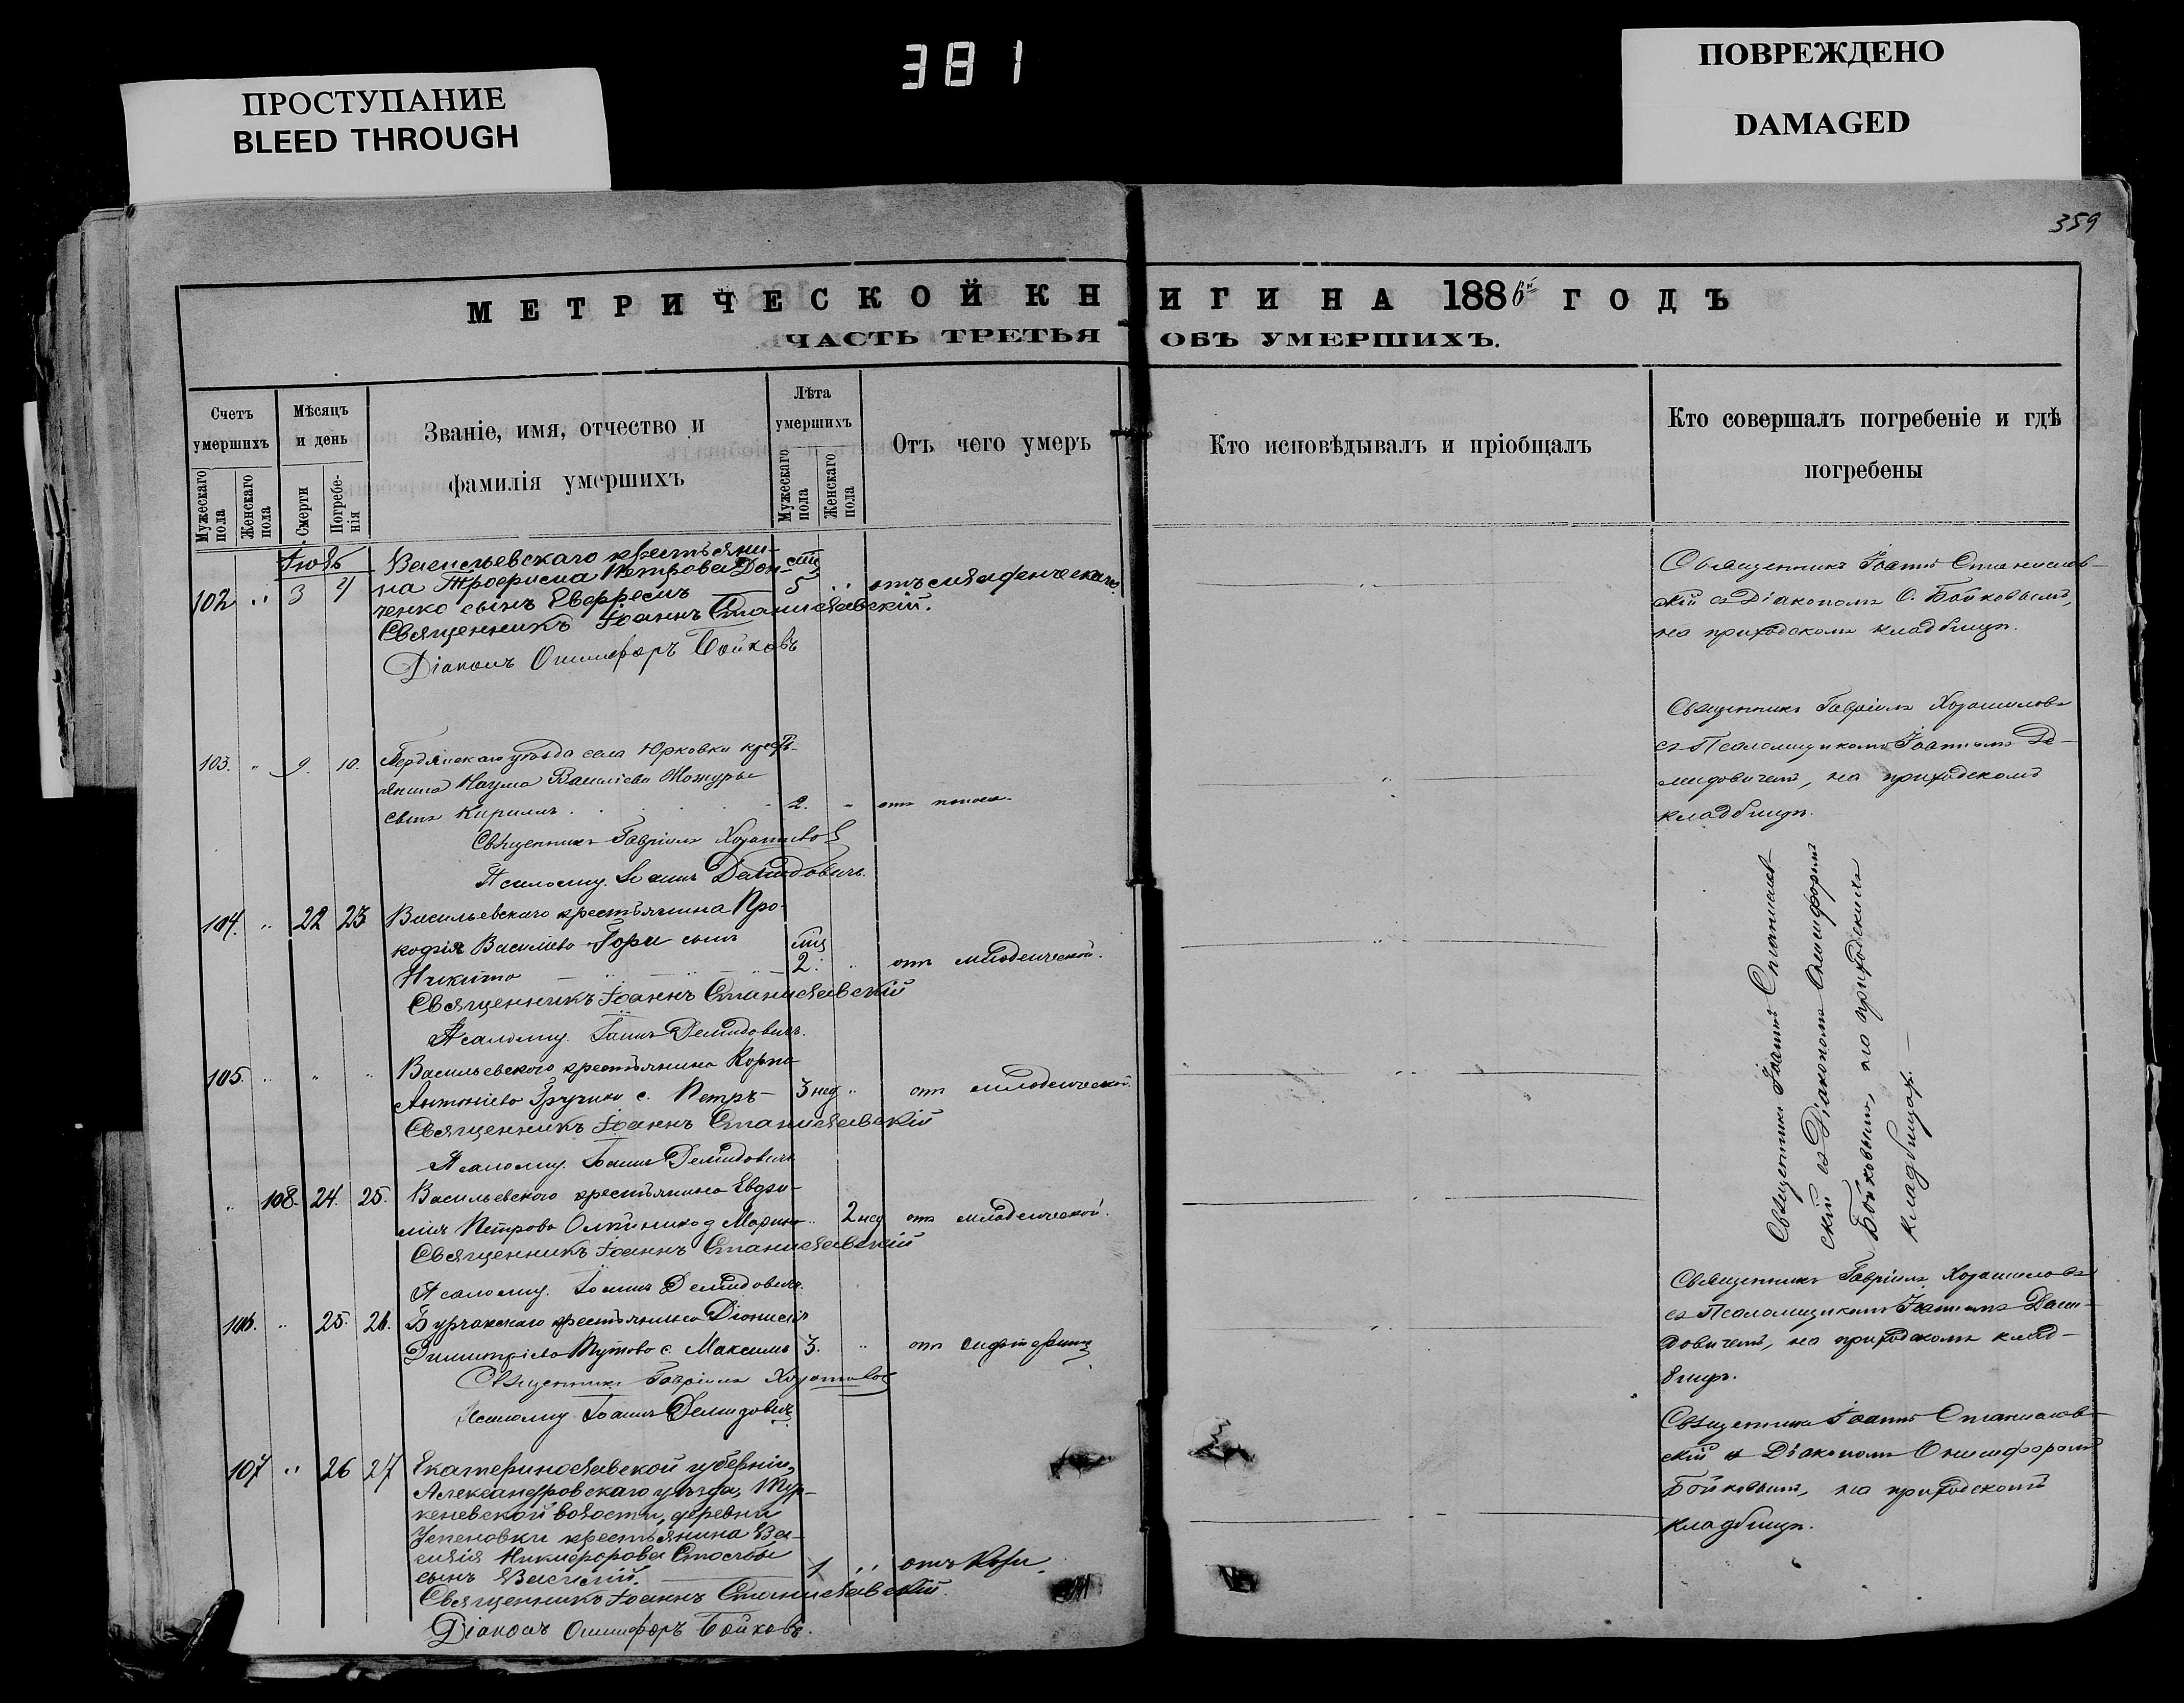 381
ПРОСТУПАНИЕ
BLEED THROUGH
ПОВРЕЖДЕНО
DAMAGED
359
МЕТРИЧЕСКОЙ КНИГИ НА 1886й ГОДЪ
ЧАСТЬ ТРЕТЬЯ ОБЪ УМЕРШИХЪ.
Счетъ умершихъ
Мужескаго пола
Женскаго пола
Мѣсяцъ и день
Смерти
Погребенія
Званіе, имя, отчество и
фамилія умершихъ
Лѣта умершихъ
Мужескаго пола
Женскаго пола
Отъ чего умеръ
Кто исповѣдывалъ и пріобщалъ
Кто совершалъ погребеніе и гдѣ
погребены
102 3 4
Васильевскаго крестьяни-
на Трофима Петрова Дон-
ченко сынъ 5
Священникъ Іоаннъ Станиславскій.
Діаконъ Онисифоръ Бойковъ
Священникъ Іоаннъ Станислав-
скій съ Діакономъ О. Бойковымъ,
на приходскомъ кладбищѣ.
103. 9. 10.
Бердянскаго уѣзда села Юрковки крестъ-
янина Наума Василіева
сынъ Кириллъ 2. отъ поноса.
Священникъ Гавріилъ
Псаломщ. Іоаннъ Демидовичъ
Священникъ Гавріилъ
съ Псаломщикомъ Іоанномъ Де-
мидовичемъ, на приходскомъ
кладбищѣ.
104. 22 23
Васильевскаго крестьянина Про-
кофія Василіева сынъ
Никита 2. отъ младенческой.
Священникъ Іоаннъ Станиславскій
Псаломщ. Іоаннъ Демидовичъ.
105.
Васильевскаго крестьянина
Антоніева с. Петръ 3 нед отъ младенческой.
Священникъ Іоаннъ Станиславскій
Псаломщ. Іоаннъ Демидовичъ
108. 24. 25.
Васильевскаго крестьянина
Петрова 2 нед отъ младенческой.
Священникъ Іоаннъ Станиславскій
Псаломщ. Іоаннъ Демидовичъ.
Священникъ Іоаннъ Станислав-
скій съ Діакономъ Онисифоромъ
Бойковымъ, на приходскихъ
кладбищах.
106. 25. 26.
Бурчакскаго крестьянина Діонисія
Димитріева с. Максимъ 3. отъ
Священникъ Гавріилъ
Псаломщ Іоаннъ Демидовичъ
Священникъ Гавріилъ
съ Псаломщикомъ Іоанномъ
довичемъ, на приходскомъ клад-
бищѣ.
107 26 27
Екатеринославской губерніи,
Александровскаго уѣзда, Тур-
кеневской волости, деревни
Успеновки крестьянина Ва-
силія Никифорова
сынъ Василій. 1 отъ Кори.
Священникъ Іоаннъ Станиславскій
Діаконъ Онисифоръ Бойковъ.
Священникъ Іоаннъ Станислав-
скій и Діакономъ Онисифоромъ
Бойковымъ, на приходскомъ
кладбищѣ.